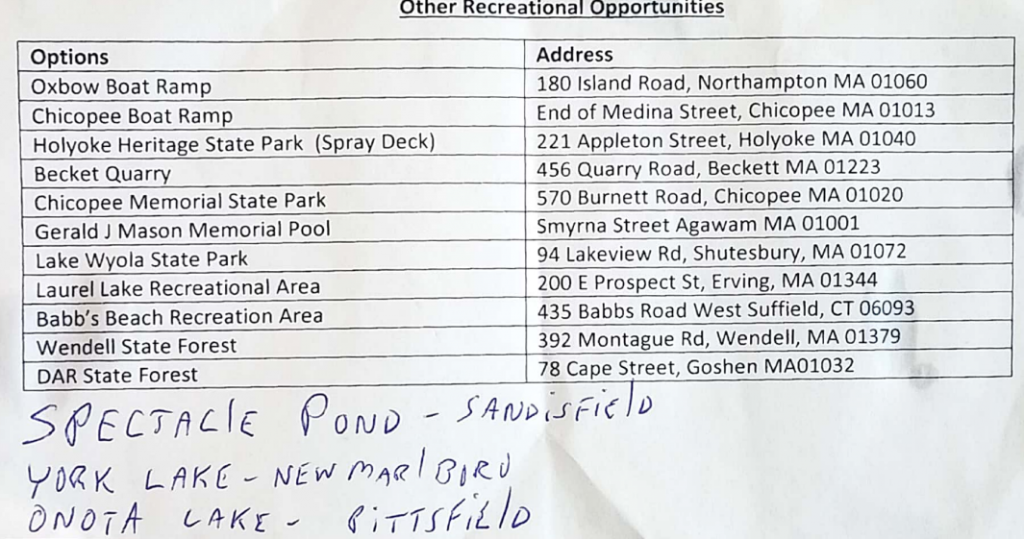 Other Recreational Opportunities
Options Address
Oxbow Boat Ramp 180 Island Road, Northampton MA 01060
Chicopee Boat Ramp End of Medina Street, Chicopee MA 01013
Holyoke Heritage State Park (Spray Deck) 221 Appleton Street, Holyoke MA 01040
Becket Quarry 456 Quarry Road, Beckett MA 01223
Chicopee Memorial State Park 570 Burnett Road, Chicopee MA 01020
Gerald J Mason Memorial Pool Smyrna Street Agawam MA 01001
Lake Wyola State Park 94 Lakeview Rd, Shutesbury, MA 01072
Laurel Lake Recreational Area 200 E Prospect St, Erving, MA 01344
Babb's Beach Recreation Area 435 Babbs Road West Suffield, CT 06093
Wendell State Forest 392 Montague Rd, Wendell, MA 01379
DAR State Forest 78 Cape Street, Goshen MA01032
SPECTAClE POND - SANDiSFiElD
YORK LAKE - NEW MARlBORO
ONOTA LAKE - PiTTSFiElD